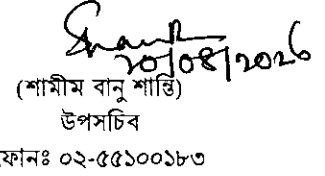 ২০/০৪/২০২৬
(শামীম বানু শান্তি)
উপসচিব
ফোনঃ ০২-৫৫১০০১৮৩